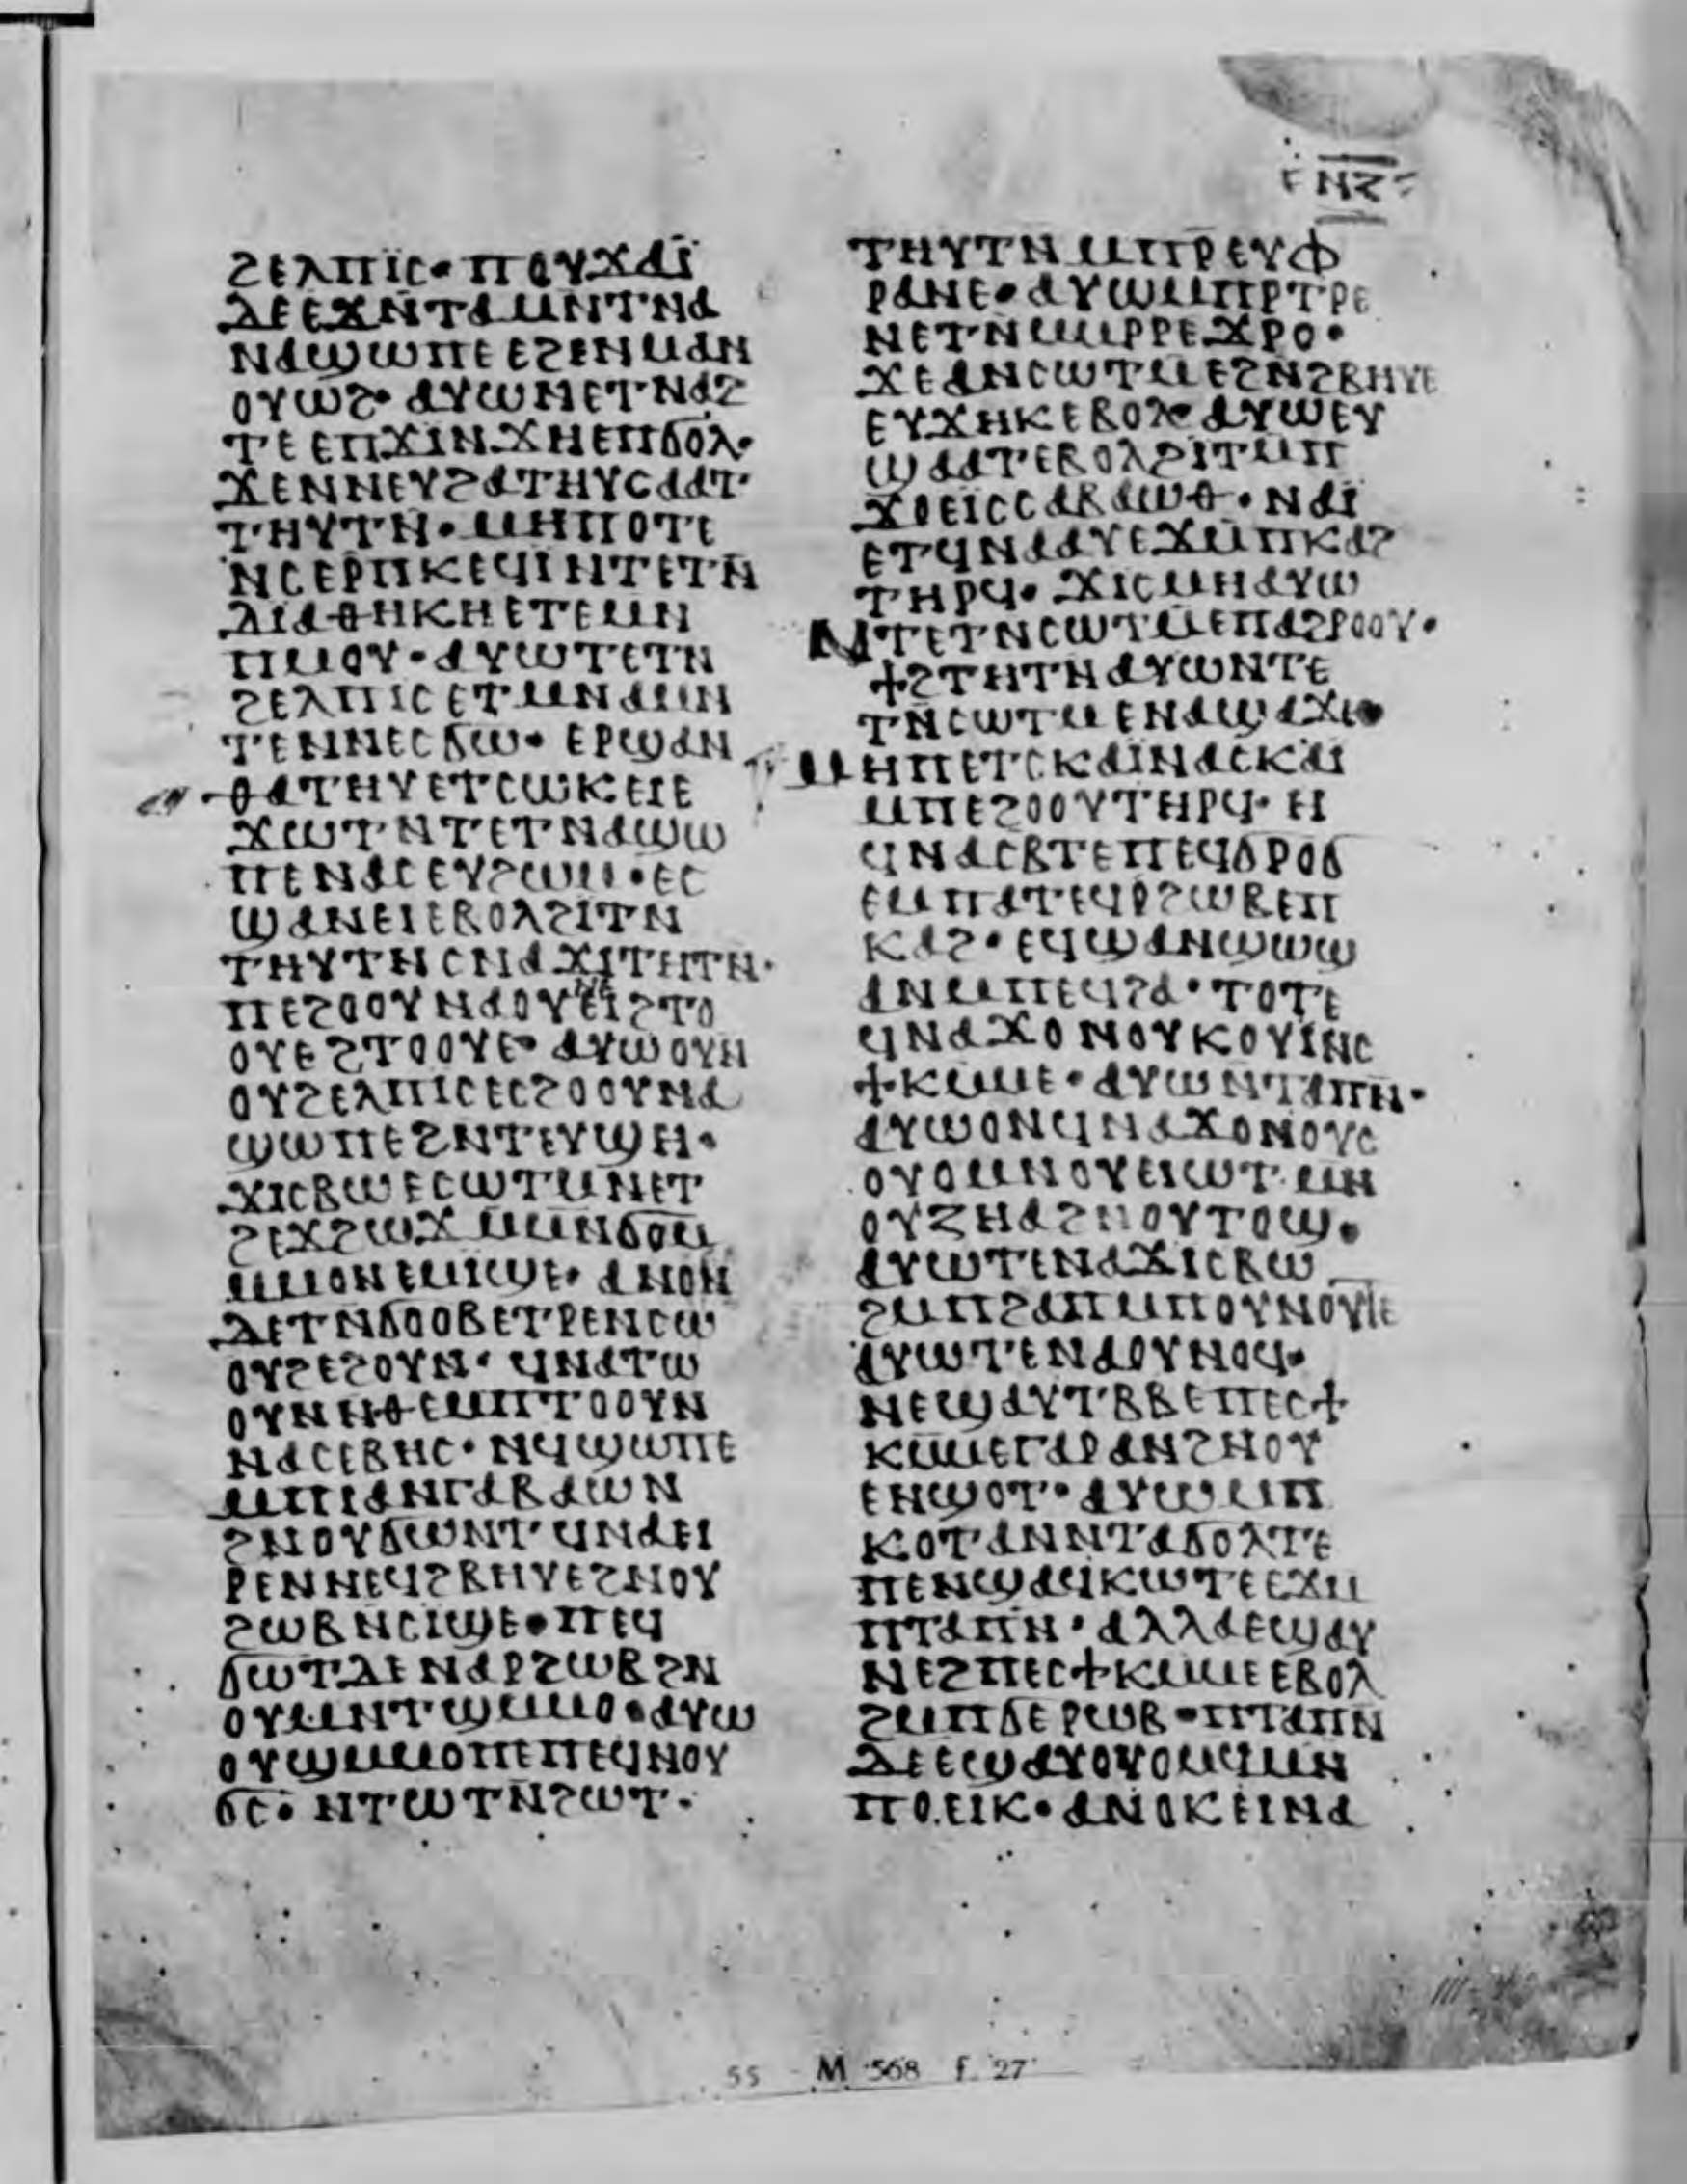 ⲛⲍ
ϩⲉⲗⲡⲓⲥ· ⲡⲟⲩϫⲁⲓ̈
ⲇⲉ ⲉϫⲛⲧⲁⲙⲛⲧⲛⲁ
ⲛⲁϣⲱⲡⲉ ⲉϩⲉⲛⲙⲁⲛ
ⲟⲩⲱϩ· ⲁⲩⲱ ⲛⲉⲧⲛⲁϩ
ⲧⲉ ⲉⲡϫⲓⲛϫⲏ ⲉⲡϭⲟⲗ·
ϫⲉ ⲛⲛⲉⲩϩⲁⲧⲏⲩ ⲥⲁⲁⲧ
ⲧⲏⲩⲧⲛ· ⲙⲏⲡⲟⲧⲉ
ⲛⲥⲉⲣⲡⲕⲉϥⲓ ⲛⲧⲉⲧⲛ
ⲇⲓⲁⲑⲏⲕⲏ ⲉⲧⲉ ⲙⲛ
ⲡⲙⲟⲩ· ⲁⲩⲱ ⲧⲉⲧⲛ
ϩⲉⲗⲡⲓⲥ ⲉⲧ ⲙⲛ ⲁⲙⲛ
ⲧⲉ ⲛⲛⲉⲥϭⲱ· ⲉⲣϣⲁⲛ
ⲑⲁⲧⲏⲩ ⲉⲧⲥⲱⲕ ⲉⲓ ⲉ
ϫⲱⲧⲛ ⲧⲉⲧⲛⲁϣⲱ
ⲡⲉ ⲛⲁⲥ ⲉⲩϩⲱⲙ· ⲉⲥ
ϣⲁⲛⲉⲓ ⲉⲃⲟⲗ ϩⲓⲧⲛ
ⲧⲏⲩⲧⲛ ⲥⲛⲁϫⲓⲧⲏⲧⲛ·
ⲡⲉϩⲟⲟⲩ ⲛⲁⲟⲩⲉⲓⲛⲉ ϩⲧⲟ
ⲟⲩⲉ ϩⲧⲟⲟⲩⲉ· ⲁⲩⲱ ⲟⲩⲛ
ⲟⲩϩⲉⲗⲡⲓⲥ ⲉⲥϩⲟⲟⲩ ⲛⲁ
ϣⲱⲡⲉ ϩⲛ ⲧⲉⲩϣⲏ·
ϫⲓⲥⲃⲱ ⲉⲥⲱⲧⲙ ⲛⲉⲧ
ϩⲉϫϩⲱϫ ⲙⲙⲛϭⲟⲙ
ⲙⲙⲟⲛ ⲉⲙⲓϣⲉ· ⲁⲛⲟⲛ
ⲇⲉ ⲧⲛϭⲟⲟⲃ ⲉⲧⲣⲉⲛⲥⲱ
ⲟⲩϩ ⲉϩⲟⲩⲛ· ϥⲛⲁⲧⲱ
ⲟⲩⲛ ⲛⲑⲉ ⲙⲡⲧⲟⲟⲩ ⲛ
ⲛⲁⲥⲉⲃⲏⲥ· ⲛϥϣⲱⲡⲉ
ⲙⲡⲓⲁ ⲛⲅⲁⲃⲁⲱⲛ
ϩⲛ ⲟⲩϭⲱⲛⲧ ϥⲛⲁⲉⲓ
ⲣⲉ ⲛⲛⲉϥϩⲃⲏⲩⲉ ϩⲛ ⲟⲩ
ϩⲱⲃ ⲛⲥⲓϣⲉ· ⲡⲉϥ
ϭⲱⲧ ⲇⲉ ⲛⲁⲣϩⲱⲃ ϩⲛ
ⲟⲩⲙⲛⲧϣⲙⲙⲟ· ⲁⲩⲱ
ⲟⲩϣⲙⲙⲟ ⲡⲉ ⲡⲉϥⲛⲟⲩ
ϭⲥ· ⲛⲧⲱⲧⲛ ϩⲱⲧ·
ⲧⲏⲩⲧⲛ ⲙⲡⲣⲉⲩⲫ
ⲣⲁⲛⲉ· ⲁⲩⲱ ⲙⲡⲣⲧⲣⲉ
ⲛⲉⲧⲛⲙⲣⲣⲉ ϫⲣⲟ·
ϫⲉ ⲁⲛⲥⲱⲧⲙ ⲉϩⲛϩⲃⲏⲩⲉ
ⲉⲩϫⲏⲕ ⲉⲃⲟⲗ ⲁⲩⲱ ⲉⲩ
ϣⲁⲁⲧ ⲉⲃⲟⲗ ϩⲓⲧⲙ ⲡ
ϫⲟⲉⲓⲥ ⲥⲁⲃⲁⲱⲑ· ⲛⲁⲓ̈
ⲉⲧϥⲛⲁⲁⲩ ⲉϫⲙ ⲡⲕⲁϩ
ⲧⲏⲣϥ· ϫⲓⲥⲙⲏ ⲁⲩⲱ
ⲛⲧⲉⲧⲛⲥⲱⲧⲙ ⲉⲡⲁϩⲣⲟⲟⲩ·
ϯϩⲧⲏⲧⲛ ⲁⲩⲱ ⲛⲧⲉ
ⲧⲛⲥⲱⲧⲙ ⲉⲛⲁϣⲁϫⲉ·
ⲙⲏ ⲡⲉⲧⲥⲕⲁⲓ̈ ⲛⲁⲥⲕⲁⲓ
ⲙⲡⲉϩⲟⲟⲩ ⲧⲏⲣϥ· ⲏ
ϥⲛⲁⲥⲃⲧⲉ ⲡⲉϥϭⲣⲟϭ
ⲉⲙⲡⲁⲧⲉϥⲣϩⲱⲃ ⲉⲡ
ⲕⲁϩ· ⲉϥϣⲁⲛϣⲱϣ
ⲁⲛ ⲙⲡⲉϥϩⲁ· ⲧⲟⲧⲉ
ϥⲛⲁϫⲟ ⲛⲟⲩⲕⲟⲩⲓ ⲛⲥ
ϯⲕⲙⲙⲉ· ⲁⲩⲱ ⲛⲧⲁⲡⲛ·
ⲁⲩⲱ ⲟⲛ ϥⲛⲁϫⲟ ⲛⲟⲩⲥ
ⲟⲩⲟ ⲙⲛ ⲟⲩⲉⲓⲱⲧ ⲙⲛ
ⲟⲩⲍⲏⲁ ϩⲛ ⲟⲩⲧⲟϣ·
ⲁⲩⲱ ⲧⲉⲛⲁϫⲓⲥⲃⲱ
ϩⲙ ⲡϩⲁⲡ ⲙⲡⲟⲩⲛⲟⲩⲧⲉ
ⲁⲩⲱ ⲧⲉⲛⲁⲟⲩⲛⲟϥ·
ⲛⲉϣⲁⲩⲧⲃⲃⲉ ⲡⲉⲥϯ
ⲕⲙⲙⲉ ⲅⲁⲣ ⲁⲛ ϩⲛ ⲟⲩ
ⲉⲛϣⲟⲧ· ⲁⲩⲱ ⲙⲡ
ⲕⲟⲧ ⲁⲛ ⲛⲧⲁϭⲟⲗⲧⲉ
ⲡⲉⲛϣⲁϥⲕⲱⲧⲉ ⲉϫⲙ
ⲡⲧⲁⲡⲛ· ⲁⲗⲗⲁ ⲉϣⲁⲩ
ⲛⲉϩ ⲡⲉⲥϯⲕⲙⲙⲉ ⲉⲃⲟⲗ
ϩⲙ ⲡϭⲉⲣⲱⲃ· ⲡⲧⲁⲡⲛ
ⲇⲉ ⲉϣⲁⲩⲟⲩⲟⲙϥ ⲙⲛ
ⲡⲟⲉⲓⲕ· ⲁⲛⲟⲕ ⲉⲓⲛⲁ
55 M 568 f. 27